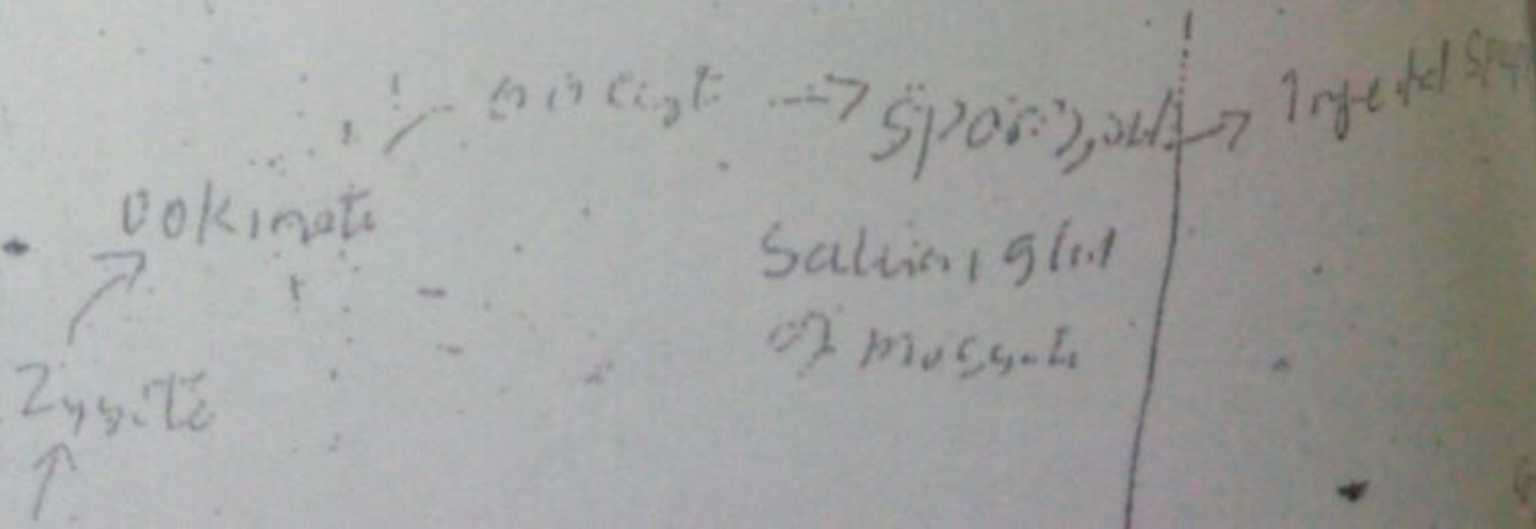 oocist → Sporozoit → Injected Sp
Ookinate
Salivary gland
of mosquito
Zygote